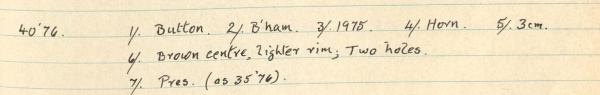 40'76. 1/. Button. 2/. B'ham. 3/. 1975. 4/. Horn. 5/. 3cm.
6/. Brown centre, lighter rim; Two holes.
7/. Pres. (as 35'76).